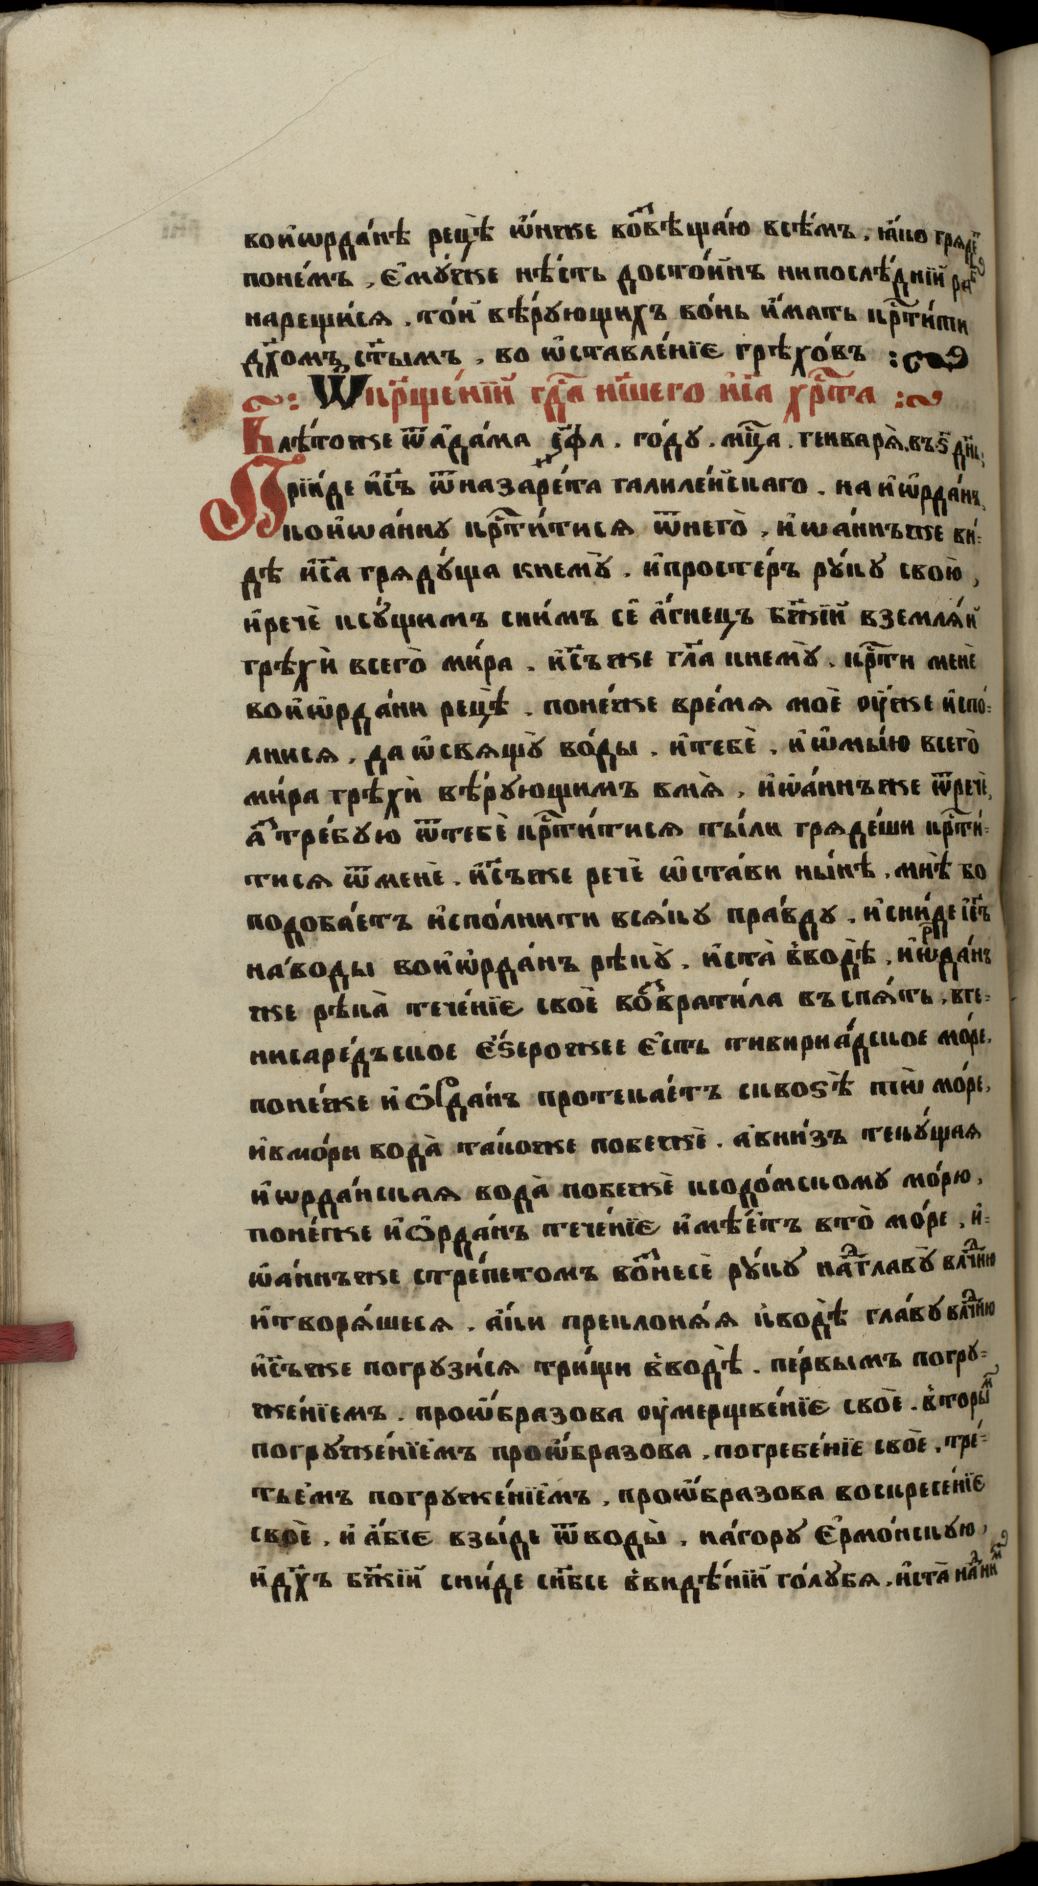 вои҆ѡрда́нѣ рецѣ̀ ѡ҆́нъже воꙁвѣща́ю всѣ́мъ. ꙗ҆́ко гряде́тъ
поне́мъ, є҆му́же нѣ́сть досто́инъ нипослѣ́днїй рабъ
нарещи́ся. то́й вѣ́рующихъ во́нь и҆́мать кр҃ти́ти
дх҃омъ ст҃ымъ, во ѡ҆ставле́нїє грѣхо́въ :
Ѡ҆ кр҃ще́нїй гд҃а нш҃его и҆і҃са хр҃та :
В лѣ́тоже ѿ а҆да́ма ҂єфл. го́ду. мц҃а. генваря̀. въ ѕ҃ дн҃ь,
Прїи́де и҆і҃съ ѿ назаре́та галиле́йскаго. на и҆ѡ҆рда́нъ,
кои҆ѡа́нну кр҃ти́тися ѿ него̀, и҆ѡа́ннъже ви́-
дѣ и҆і҃са гряду́ща кнему̀. и҆простє́ръ ру́ку свою̀,
и҆речѐ ксу́щимъ сни́мъ сѐ а҆́гнецъ бж҃їй вземля́й
грѣхѝ всего̀ ми́ра. и҆і҃съже гл҃а кнему̀. кр҃ти менѐ
вои҆ѡ҆рда́ни рецѣ̀. поне́же вре́мя моѐ ᲂу҆́же и҆спо́-
лнися, да ѡ҆свящу̀ во́ды. и҆тебѐ. и҆ ѡ҆мы́ю всего̀
ми́ра грѣхѝ вѣ́рующимъ вмя̀, и҆ѡа́ннъже ѿречѐ,
а҆́зъ тре́бую ѿ тебѐ кр҃ти́тися ты́ли гряде́ши кр҃ти́-
тися ѿ менѐ. и҆і҃съже речѐ ѡ҆ста́ви ны́нѣ, мнѣ́ бо
подоба́етъ и҆спо́лнити вся́ку пра́вду. и҆сни́де і҆і҃съ
на́воды вои҆ѡ҆рда́нъ рѣку̀. и҆ста̀ в̾водѣ̀, и҆ѡ҆рда́нъ
же рѣка̀ тече́нїє своѐ воꙁврати́ла въспя́ть, вге-
нисаре́дъское є҆́ѕероже́е є҆́сть тивириа́дское мо́ре,
поне́же и҆ѻ҆рда́нъ протека́етъ сквоѕѣ̀ тѡ̀ мо́ре,
и҆вмо́ри вода̀ та́коже побежѐ. а҆вни́зъ теку́щая
и҆ѡрда́нская вода̀ побежѐ ксодо́мскому мо́рю,
поне́же и҆ѻ҆рда́нъ тече́нїє и҆мѣ́етъ вто̀ мо́ре, и҆-
ѡ҆а́ннъже стре́петомъ воꙁнесѐ ру́ку на́дглаву̀ влⷣчню
и҆творя́шеся. а҆́ки преклоня́я к̾водѣ̀ гла́ву влⷣчню
и҆і҃съже погрузи́ся три́щи в̾водѣ̀. пе́рвымъ погру-
же́нїемъ. проѡ҆́бразова ᲂу҆мерщве́нїє своѐ. в̾торы́мъ
погруже́нїемъ проѡ҆́бразова, погребе́нїє своѐ, тре́-
тьемъ погруже́нїемъ, проѡ҆́бразова воскресе́нїє
своѐ, и҆ а҆́бїє взы́де ѿ воды̀, на́гору є҆рмо́нскую,
и҆дх҃ъ бж҃їй сни́де сн҃бсе в̾видѣ́нїй го́лубя, и҆ста̀ на́днимъ